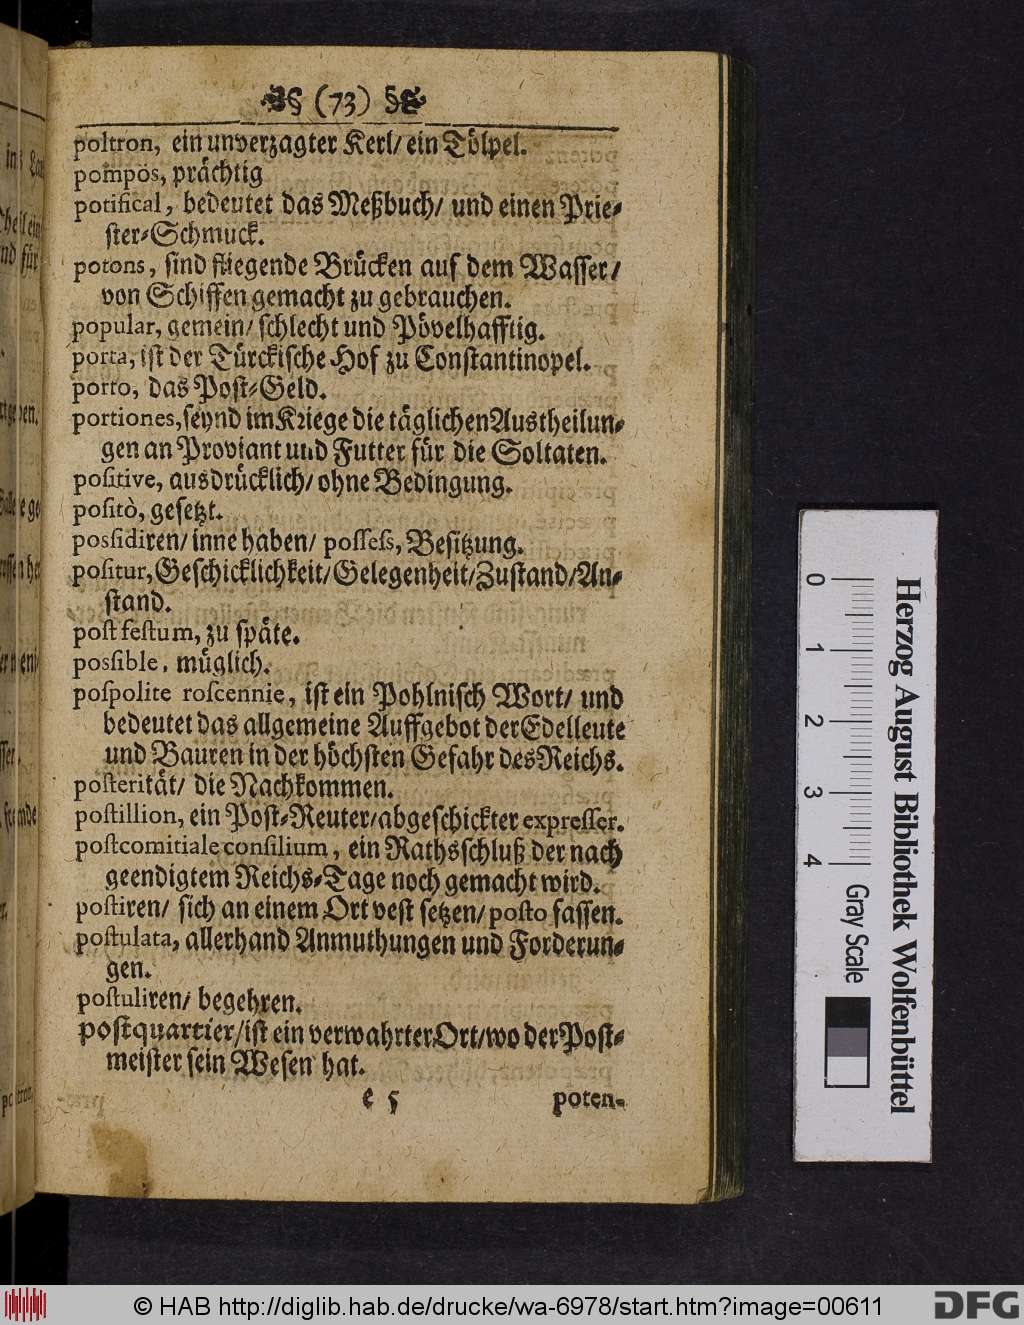 § (73) §
poltron, ein unverzagter Kerl/ ein Tölpel.
pompös, prächtig
potifical, bedeutet das Meßbuch/ und einen Prie-
ster-Schmuck.
potons, sind fliegende Brücken auf dem Wasser/
von Schiffen gemacht zu gebrauchen.
popular, gemein/ schlecht und Pövelhafftig.
porta, ist der Türckische Hof zu Constantinopel.
porto, das Post-Geld.
portiones, seynd im Kriege die täglichen Austheilun-
gen an Proviant und Futter für die Soltaten.
positive, ausdrücklich/ ohne Bedingung.
positò, gesetzt.
possidiren/ inne haben/ possess, Besitzung.
positur, Geschicklichkeit/ Gelegenheit/ Zustand/ An-
stand.
post festum, zu späte.
possible, müglich.
pospolite roscennie, ist ein Pohlnisch Wort/ und
bedeutet das allgemeine Auffgebot der Edelleute
und Bauren in der höchsten Gefahr des Reichs.
posterität/ die Nachkommen.
postillion, ein Post-Reuter/ abgeschickter expresser.
postcomitiale consilium, ein Rathsschluß der nach
geendigtem Reichs-Tage noch gemacht wird.
postiren/ sich an einem Ort vest setzen/ posto fassen.
postulata, allerhand Anmuthungen und Forderun-
gen.
postuliren/ begehren.
postquartier/ ist ein verwahrter Ort/ wo der Post-
meister sein Wesen hat.
e 5 poten-
0 1 2 3 4 Gray Scale
Herzog August Bibliothek Wolfenbüttel
© HAB http://diglib.hab.de/drucke/wa-6978/start.htm?image=00611
DFG